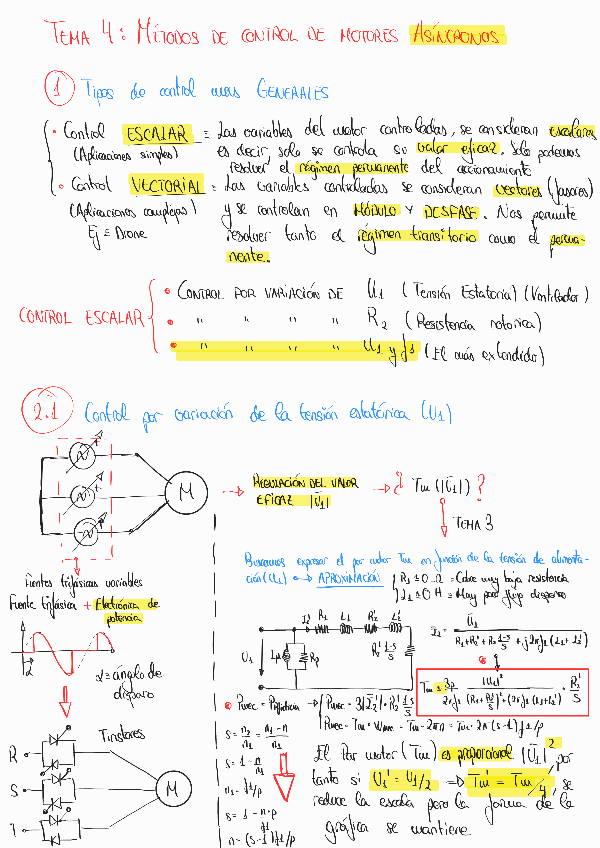 TEMA 4: MÉTODOS DE CONTROL DE MOTORES ASÍNCRONOS
1 Tipos de control más GENERALES
• Control ESCALAR = Las variables del motor controladas, se consideran escalares
(Aplicaciones simples) es decir, solo se controla su valor eficaz. Solo podemos
resolver el régimen permanente del accionamiento
• Control VECTORIAL = Las variables controladas se consideran vectores (fasores)
(Aplicaciones complejas) y se controlan en MÓDULO Y DESFASE. Nos permite
Ej = Drone resolver tanto el régimen transitorio como el perma-
nente.
CONTROL ESCALAR
• CONTROL POR VARIACIÓN DE U1 (Tensión Estatórica) (Ventilador)
• " " " " R2 (Resistencia rotórica)
• " " " " U1 y f1 (El más extendido)
2.1 Control por variación de la tensión estatórica (U1)
M
REGULACIÓN DEL VALOR
EFICAZ |U1|
¿ Tm (|U1|) ?
TEMA 3
Fuentes trifásicas variables
Fuente trifásica + Electrónica de
potencia
α
α = ángulo de
disparo
Tiristores
R
S
T
M
Buscamos expresar el par motor Tm en función de la tensión de alimenta-
ción (U1) APROXIMACIÓN
R1 ≅ 0 Ω = Cobre muy baja resistencia
L1 ≅ 0 H = Muy poco flujo disperso
R1 L1 R2' L2'
U1
Rp
R2' 1-s/s
• Pmec = Pφ
Pmec = 3|I2'|² · R2' 1-s/s
s = n2/n1 = n1-n/n1
s = 1 - n/n1
n1 = f1/p
s = 1 - n·p/f1
El Par motor (Tm) es proporcional |U1|², por
tanto si U1' = U1/2 → Tm' = Tm/4, se
reduce la escala pero la forma de la
gráfica se mantiene